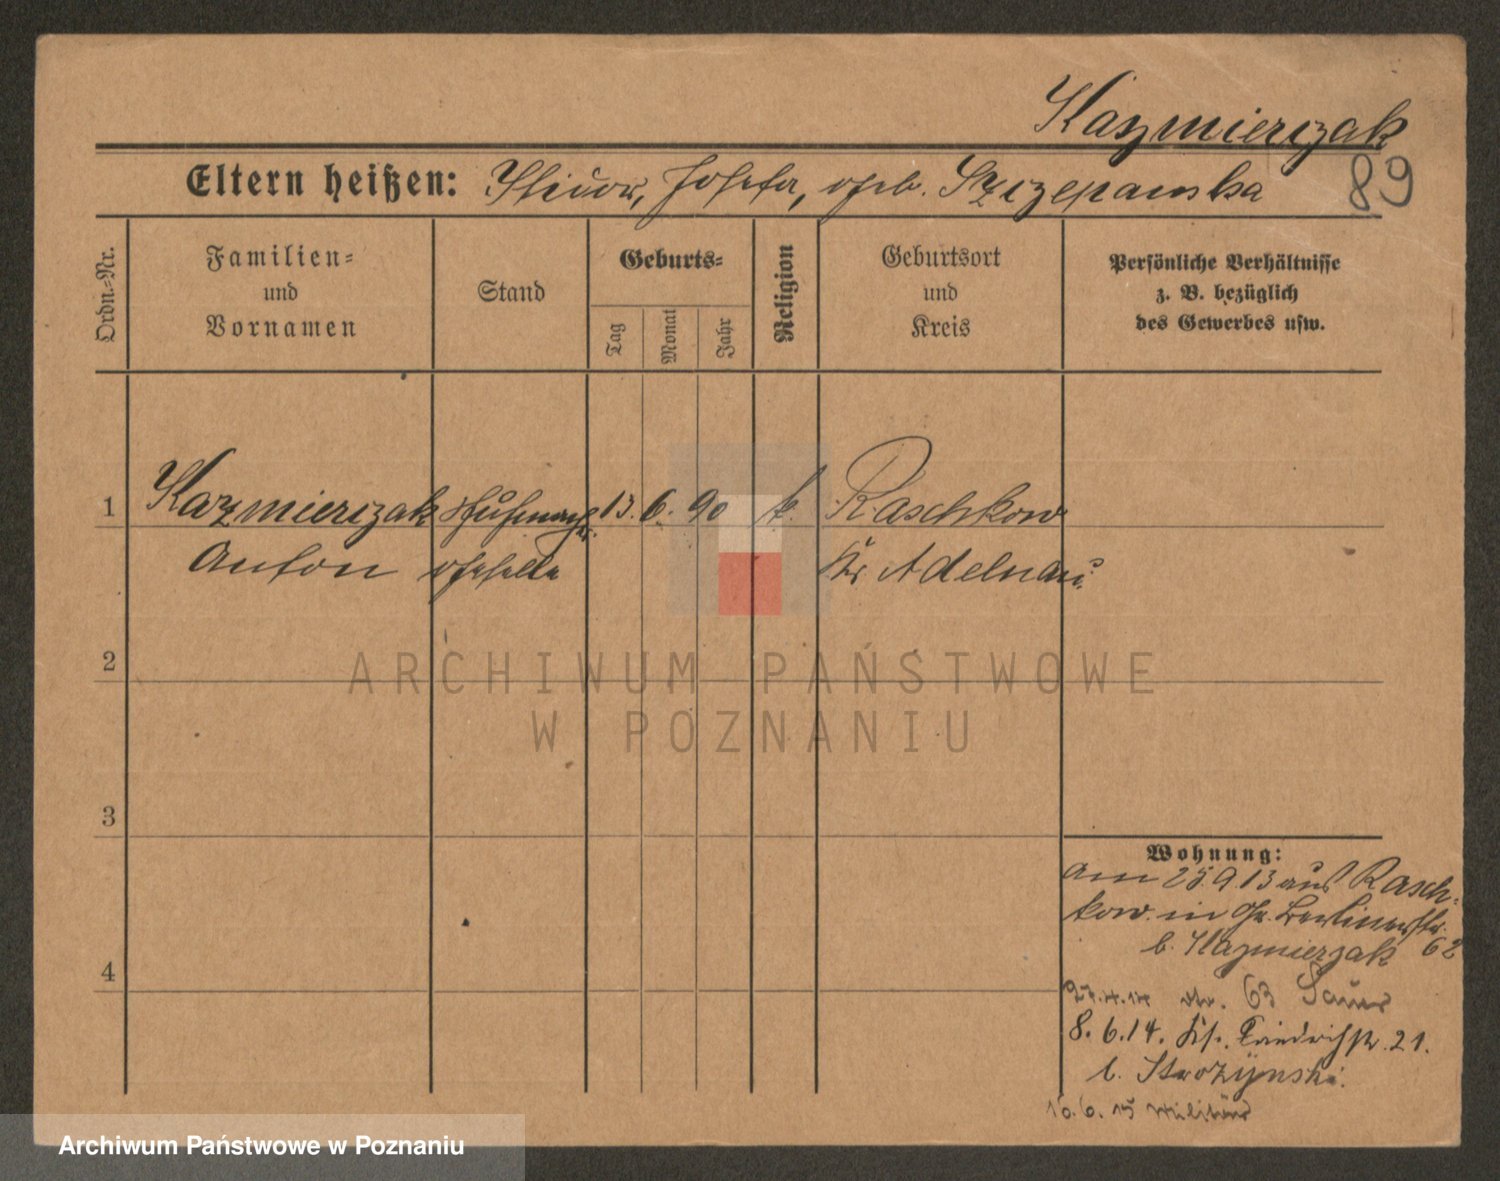 Kazmierczak
89
Eltern heißen: Josefa, geb. Szczepanska
Ordn.-Nr.
Familien-
und
Vornamen
Stand
Geburts-
Tag
Monat
Jahr
Religion
Geburtsort
und
Kreis
Persönliche Verhältnisse
z. B. bezüglich
des Gewerbes usw.
1 Kazmierczak Schuhmacher 13. 6. 90 k. Raschkow
Anton geselle Kr Adelnau
2
3
4
Wohnung:
am 25.9.13 aus Rasch-
kow. in Gr. Berlinerstr.
b. Kazmierzak 62
27.4.14 dto. 63 Sauer
8.6.14. Ks. Friedrichstr. 21.
b. Strozynski.
16.6.15 Militär
ARCHIWUM PAŃSTWOWE
W POZNANIU
Archiwum Państwowe w Poznaniu